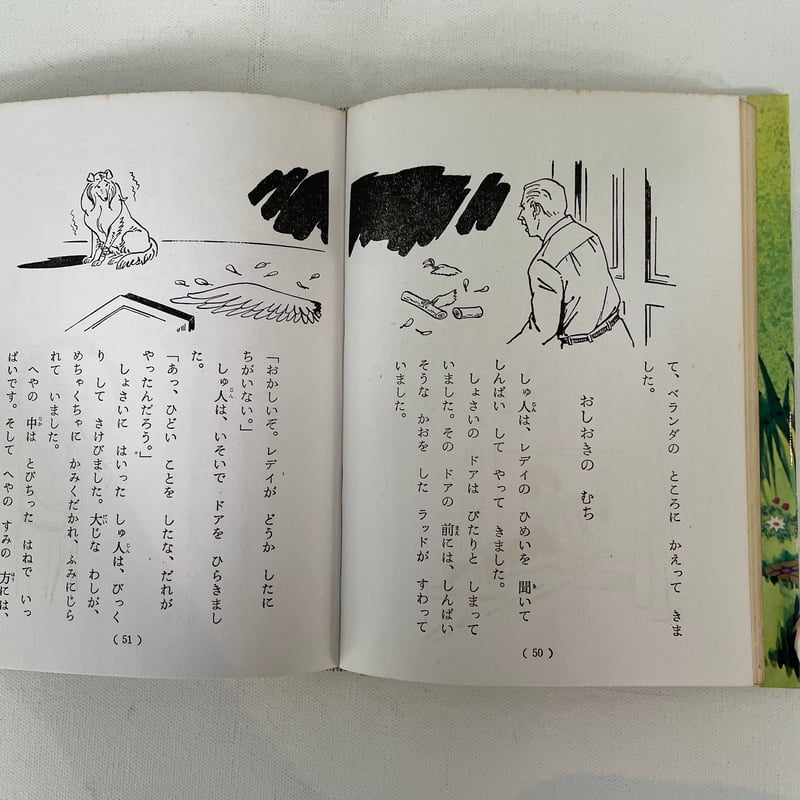 て、ベランダの ところに かえって きま
した。
おしおきの むち
しゅ人は、レデイの ひめいを 聞いて
しんぱい して やって きました。
しょさいの ドアは ぴたりと しまって
いました。その ドアの 前には、しんぱい
そうな かおを した ラッドが すわって
いました。
(50)
「おかしいぞ。レデイが どうか したに
ちがいない。」
しゅ人は、いそいで ドアを ひらきまし
た。
「あっ、ひどい ことを したな、だれが
やったんだろう。」
しょさいに はいった しゅ人は、びっく
り して さけびました。大じな わしが、
めちゃくちゃに かみくだかれ、ふみにじら
れて いました。
へやの 中は とびちった はねで いっ
ぱいです。そして へやの すみの 方には、
(51)